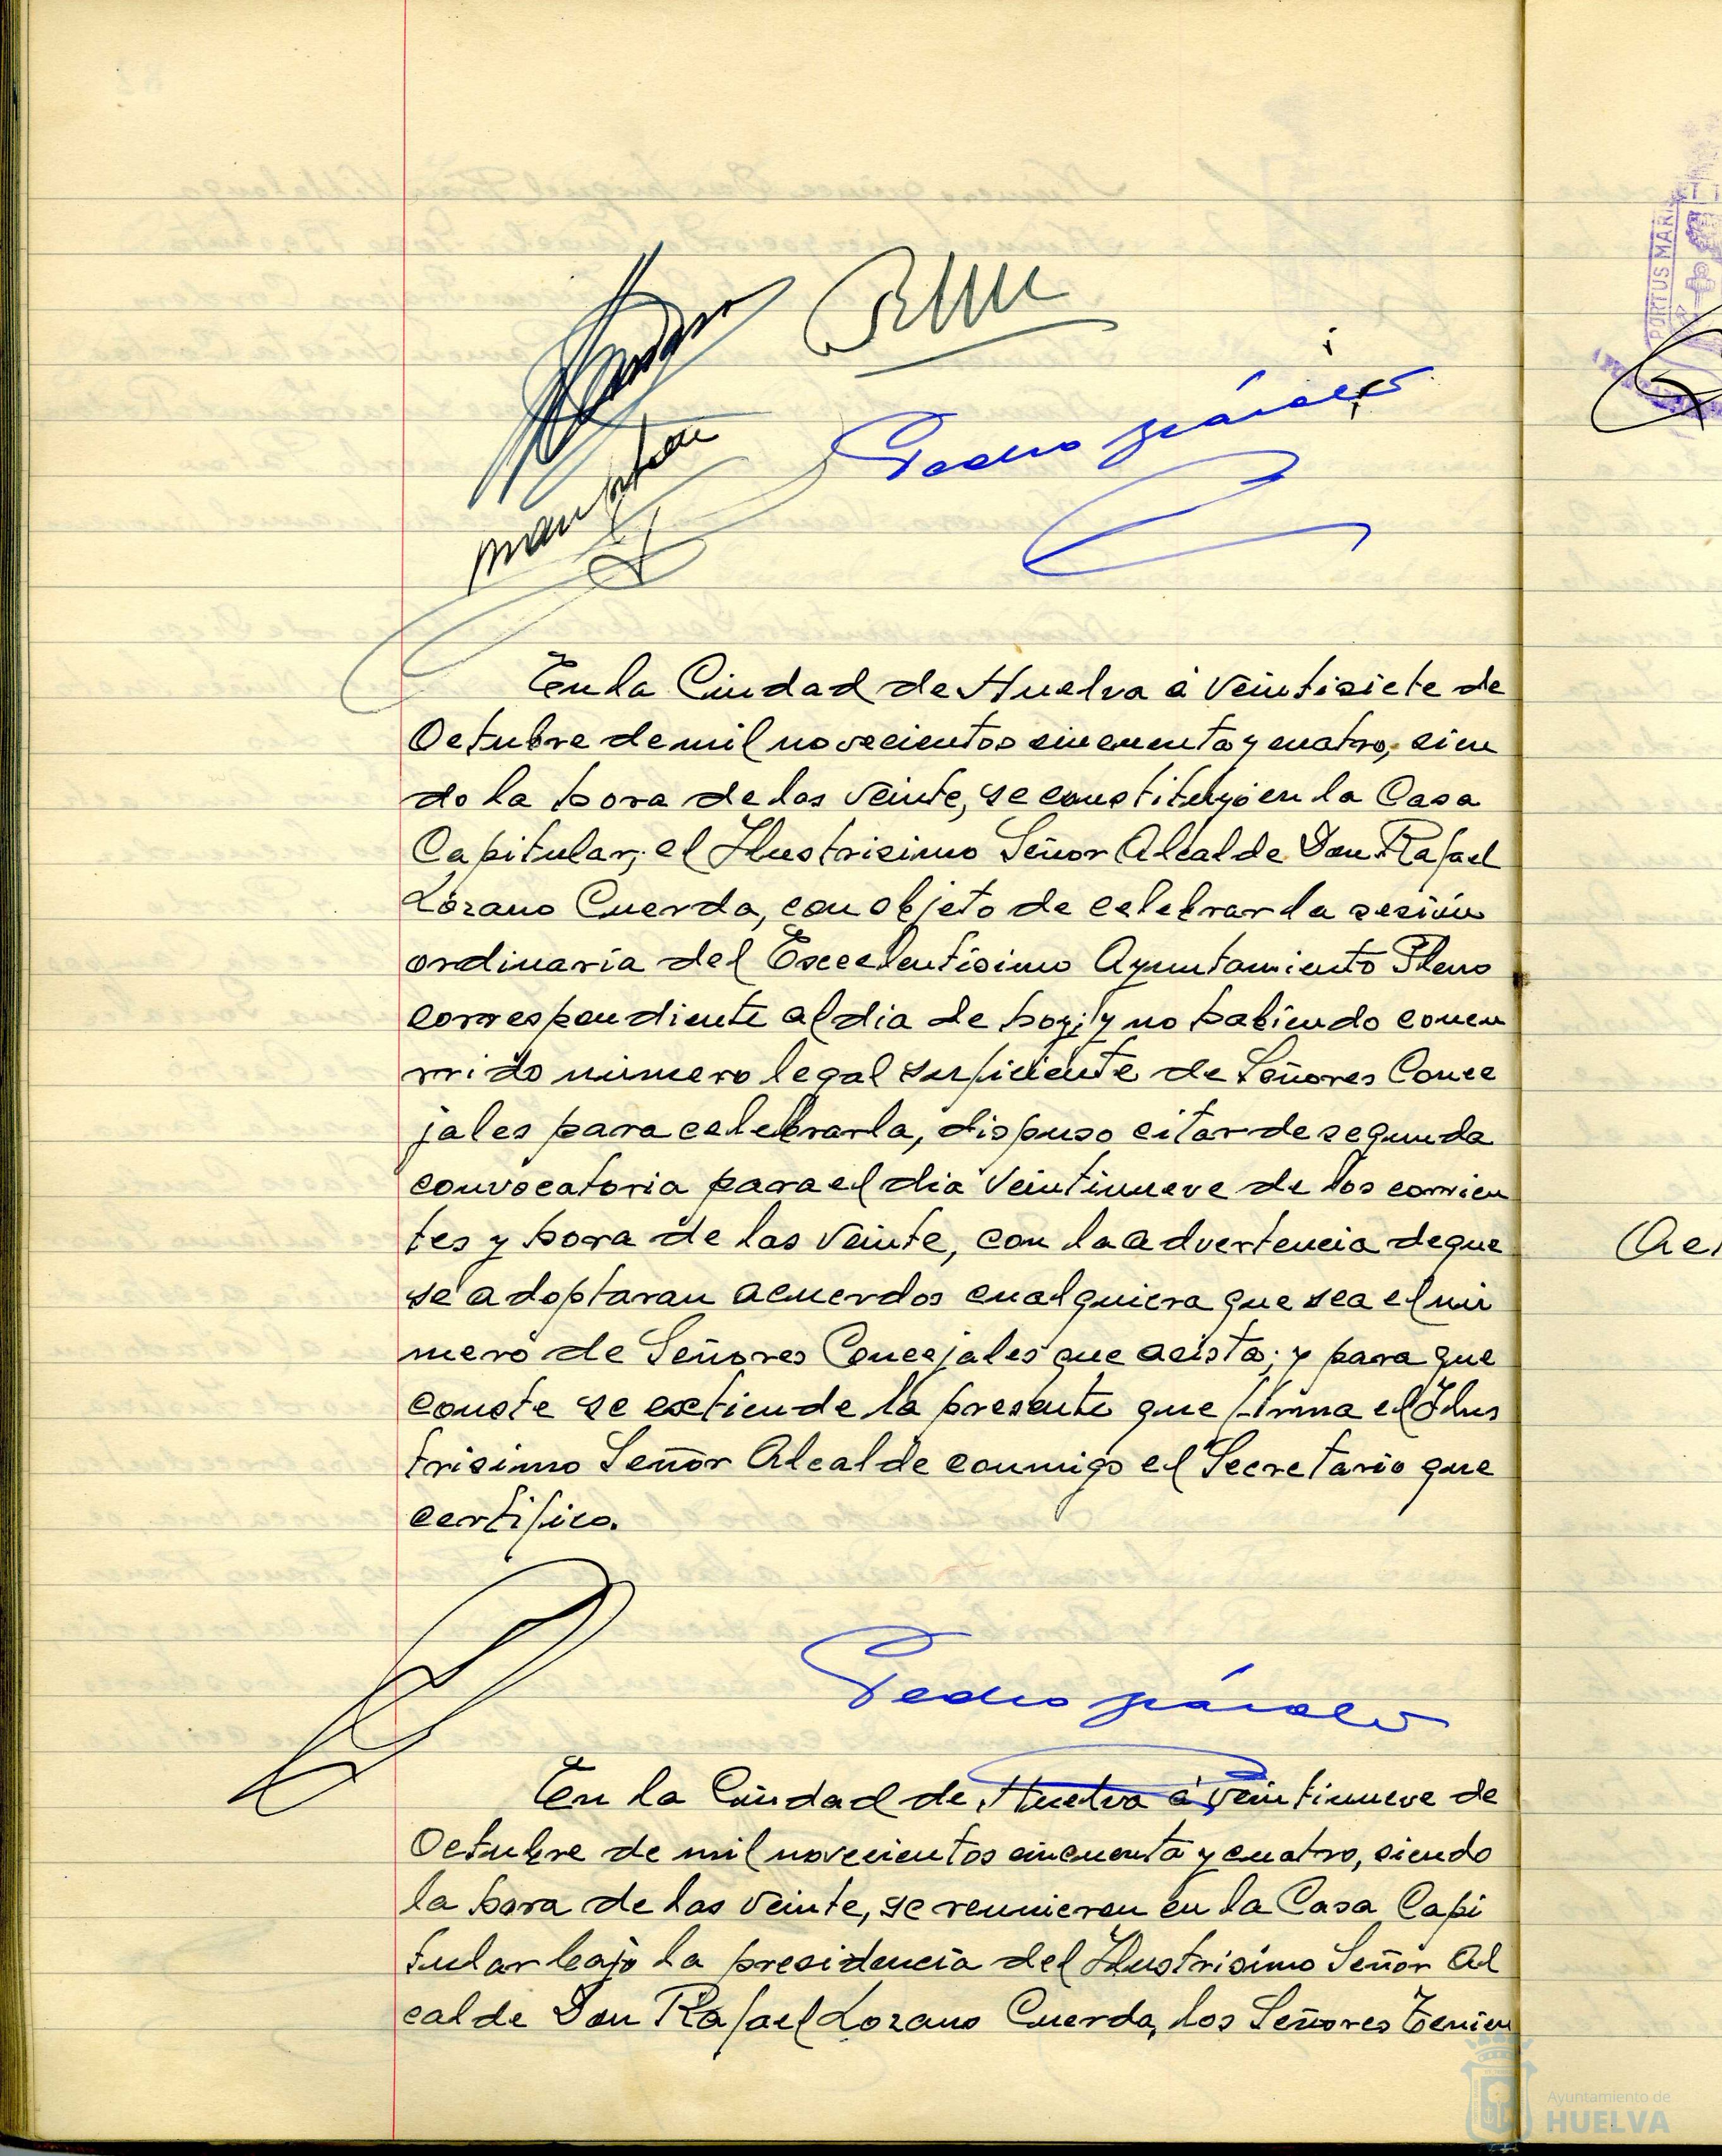 Pedro
En la Ciudad de Huelva á veintisiete de
Octubre de mil novecientos cincuenta y cuatro, sien
do la hora de las veinte, se constituyó en la Casa
Capitular, el Ilustrisimo Señor Alcalde Don Rafael
Lozano Cuerda, con objeto de celebrar la sesión
ordinaria del Excelentisimo Ayuntamiento Pleno
correspondiente al dia de hoy; y no habiendo concu
rrido número legal suficiente de Señores Conce
jales para celebrarla, dispuso citar de segunda
convocatoria para el dia veintinueve de los corrien
tes y hora de las veinte, con la advertencia de que
se adoptaran acuerdos cualquiera que sea el nú
mero de Señores Concejales que acista; y para que
conste se extiende la presente que firma el Ilus
trisimo Señor Alcalde conmigo el Secretario que
certifico.
Pedro
En la Ciudad de Huelva á veintinueve de
Octubre de mil novecientos cincuenta y cuatro, siendo
la hora de las veinte, se reunieron en la Casa Capi
tular bajo la presidencia del Ilustrisimo Señor Al
calde Don Rafael Lozano Cuerda, los Señores Tenien
PORTUS MARIS
Ayuntamiento de
HUELVA